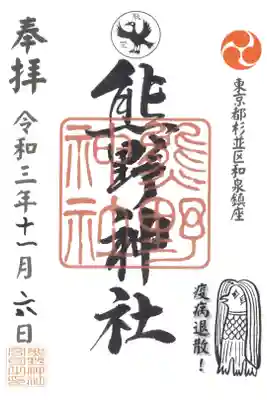 東京都杉並区和泉鎮座
疫病退散!
熊野神社
熊野
神社
奉拝
令和三年十一月六日